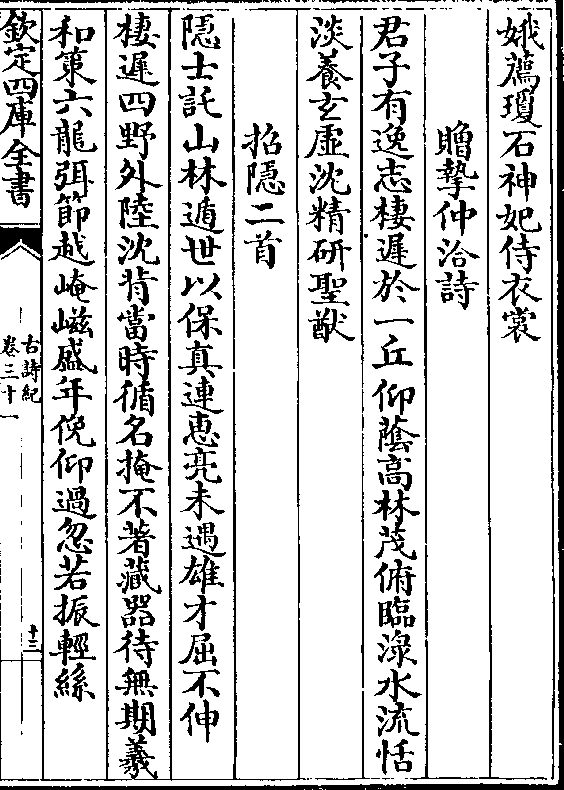 娥薦瓊石神妃侍衣裳
贈摯仲洽詩
君子有逸志棲遲於一丘仰蔭高林茂俯臨淥水流恬
淡養玄虛沈精研聖猷
招隱二首
隠士託山林遁世以保真連恵亮未遇雄才屈不伸
棲遲四野外陸沈背當時循名掩不著藏器待無期羲
和策六龍弭節越崦嵫盛年俛仰過忽若振輕絲
欽定四庫全書
古詩紀
卷三十一
十三